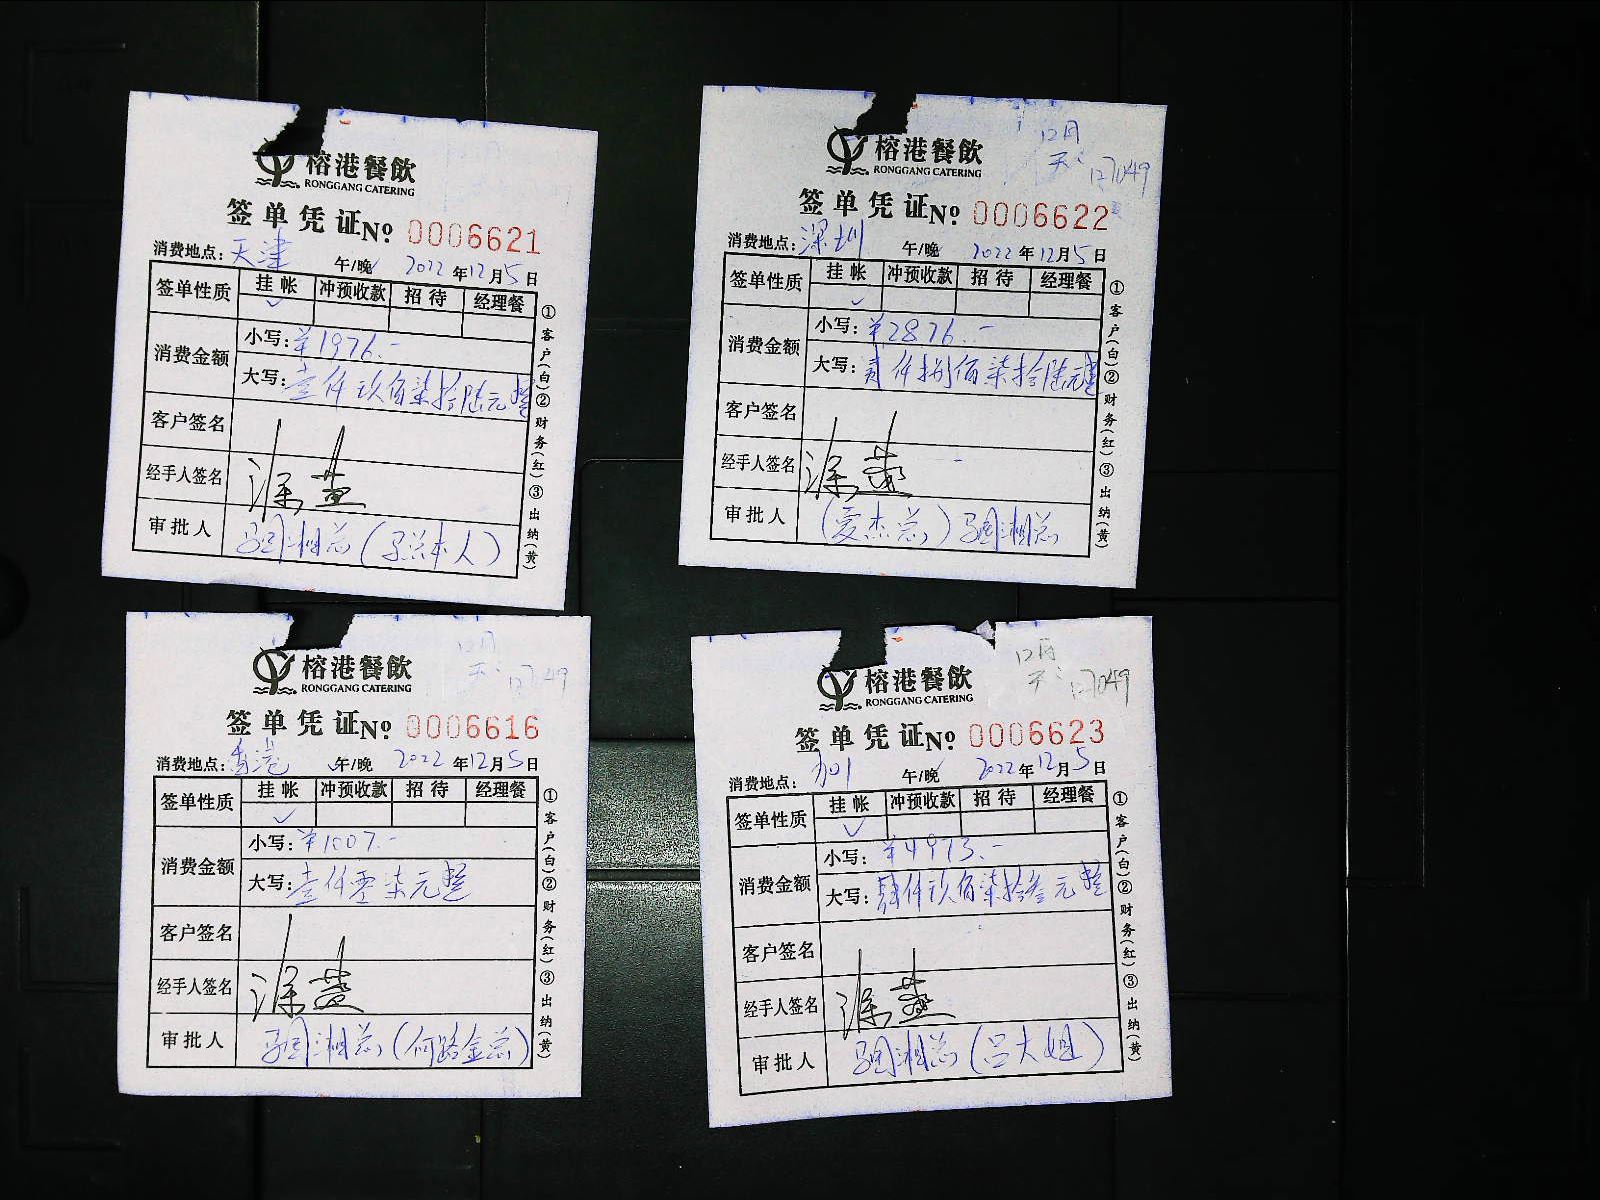 榕港餐飲
RONGGANG CATERING
签单凭证№ 0006621
消费地点：天津 午/晚 2022年12月5日
签单性质 挂帐 冲预收款 招待 经理餐
✓
消费金额 小写：¥1976.-
大写：壹仟玖佰柒拾陆元整
客户签名
经手人签名
审批人 国湘总（总本人）
①客户(白)②财务(红)③出纳(黄)
12月
天: 127049
榕港餐飲
RONGGANG CATERING
签单凭证№ 0006622
消费地点：深圳 午/晚 2022年12月5日
签单性质 挂帐 冲预收款 招待 经理餐
✓
消费金额 小写：¥2876.-
大写：贰仟捌佰柒拾陆元整
客户签名
经手人签名
审批人 （爱杰总）国湘总
①客户(白)②财务(红)③出纳(黄)
12月
天: 127049
榕港餐飲
RONGGANG CATERING
签单凭证№ 0006616
消费地点：香港 ✓午/晚 2022年12月5日
签单性质 挂帐 冲预收款 招待 经理餐
✓
消费金额 小写：¥1007.-
大写：壹仟零柒元整
客户签名
经手人签名
审批人 国湘总（何路金总）
①客户(白)②财务(红)③出纳(黄)
12月
127049
榕港餐飲
RONGGANG CATERING
签单凭证№ 0006623
消费地点： 午/晚 2022年12月5日
签单性质 挂帐 冲预收款 招待 经理餐
✓
消费金额 小写：¥4973.-
大写：肆仟玖佰柒拾叁元整
客户签名
经手人签名
审批人 国湘总（吕大姐）
①客户(白)②财务(红)③出纳(黄)